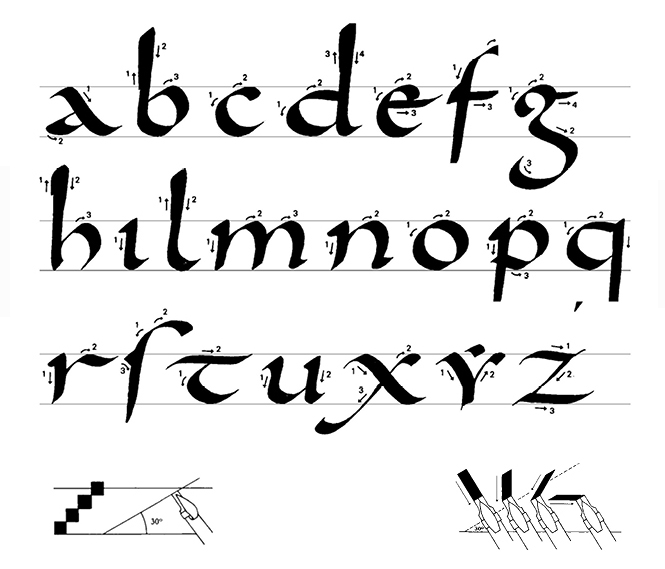 a b c d e f g
h ı l m n o p q
r ſ t u x ẏ z
30°
30°